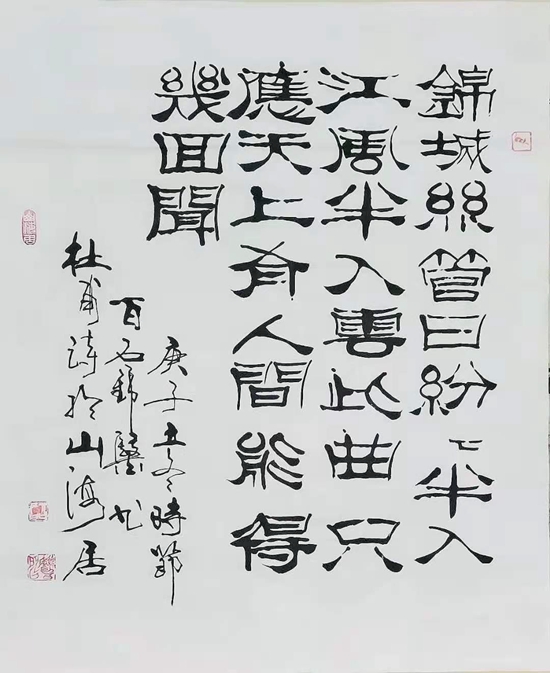 錦城絲管日紛〻半入
江風半入雲此曲只
應天上有人間能得
幾回聞
庚子立冬時節
百石書
杜甫詩於山海居